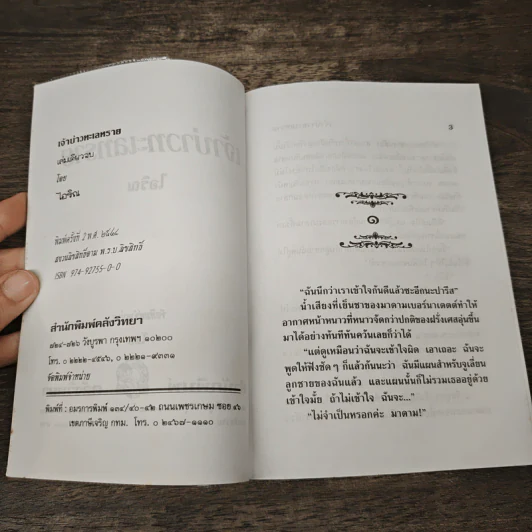 เจ้าบ่าวทะเลทราย
เล่มเดียวจบ
โดย
ไอริณ
พิมพ์ครั้งที่ 2 พ.ศ. ๒๕๔๔
สงวนลิขสิทธิ์ตาม พ.ร.บ.ลิขสิทธิ์
ISBN 974-92755-0-0
สำนักพิมพ์คลังวิทยา
๗๒๔-๗๒๖ วังบูรพา กรุงเทพฯ ๑๐๒๐๐
โทร. ๐ ๒๒๒๒-๔๕๔๖, ๐ ๒๒๒๑-๙๓๓๑
จัดพิมพ์จำหน่าย
พิมพ์ที่ : อมรการพิมพ์ ๑๓๔/๔๐-๔๒ ถนนเพชรเกษม ซอย ๔๖
เขตภาษีเจริญ กทม. โทร. ๐ ๒๔๖๗-๑๑๑๐
3
๑
“ฉันนึกว่าเราเข้าใจกันดีแล้วซะอีกนะปารีส”
น้ำเสียงที่เย็นชาของมาดามเบอร์นาเดตต์ทำให้
อากาศหน้าหนาวที่หนาวจัดกว่าปกติของฝรั่งเศสอุ่นขึ้น
มาได้อย่างทันทีทันควันเลยก็ว่าได้
“แต่ดูเหมือนว่าฉันจะเข้าใจผิด เอาเถอะ ฉันจะ
พูดให้ฟังชัด ๆ ก็แล้วกันนะว่า ฉันมีแผนสำหรับจูเลี่ยน
ลูกชายของฉันแล้ว และแผนนั้นก็ไม่รวมเธออยู่ด้วย
เข้าใจมั้ย ถ้าไม่เข้าใจ ฉันจะ...”
“ไม่จำเป็นหรอกค่ะ มาดาม!”